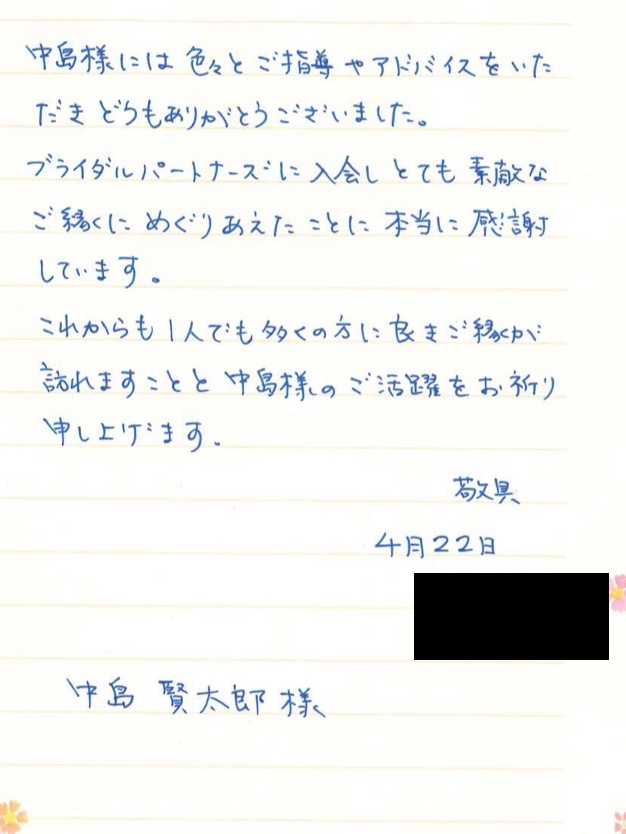 中島様には色々とご指導やアドバイスをいた
だきどうもありがとうございました。
ブライダルパートナーズに入会しとても素敵な
ご縁にめぐりあえたことに本当に感謝
しています。
これからも1人でも多くの方に良きご縁が
訪れますことと中島様のご活躍をお祈り
申し上げます。
敬具
4月22日
中島 賢太郎 様